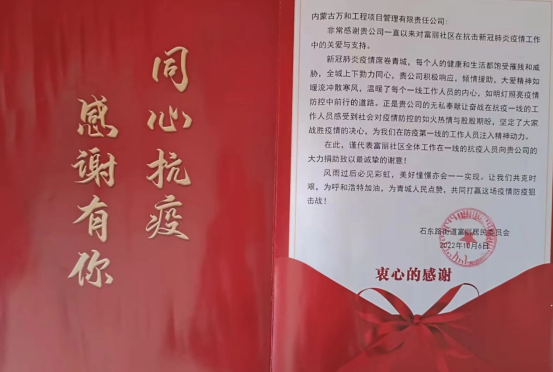 同心抗疫
感谢有你
内蒙古万和工程项目管理有限责任公司：
非常感谢贵公司一直以来对富丽社区在抗击新冠肺炎疫情工作
中的关爱与支持。
新冠肺炎疫情席卷青城，每个人的健康和生活都饱受摧残和威
胁，全城上下勠力同心，贵公司积极响应，倾情援助，大爱精神如
暖流冲散寒风，温暖了每个一线工作人员的内心，如明灯照亮疫情
防控中前行的道路。正是贵公司的无私奉献让奋战在抗疫一线的工
作人员感受到社会对疫情防控的如火热情与殷殷期盼，坚定了大家
战胜疫情的决心，为我们在防疫第一线的工作人员注入精神动力。
在此，谨代表富丽社区全体工作在一线的抗疫人员向贵公司的
大力捐助致以最诚挚的谢意！
风雨过后必见彩虹，美好憧憬亦会一一实现。让我们共克时
艰，为呼和浩特加油，为青城人民点赞，共同打赢这场疫情防疫狙
击战！
石东路街道富丽居民委员会
2022年10月6日
衷心的感谢